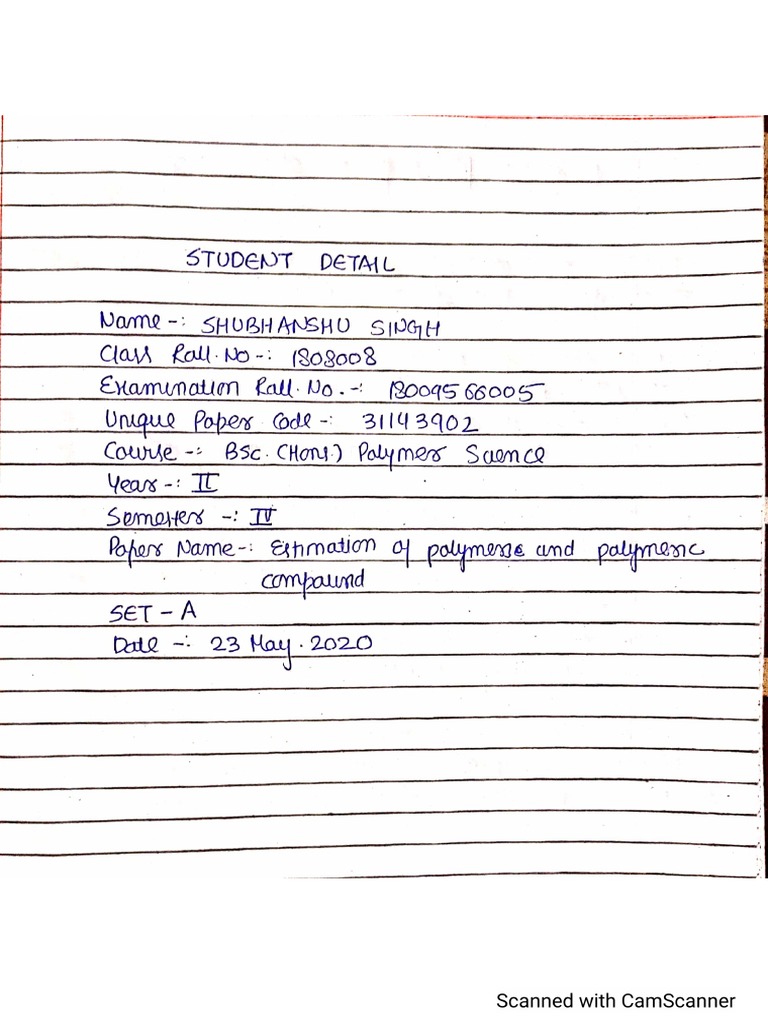 STUDENT DETAIL
Name -: SHUBHANSHU SINGH
Class Roll. No -: 1808008
Examination Roll. No. -: 18009566005
Unique Paper Code -: 31143902
Course -: BSc. (Hons.) Polymer Science
Year -: II
Semester -: IV
Paper Name -: Estimation of polymeric and polymeric
compound
SET - A
Date -: 23 May. 2020
Scanned with CamScanner